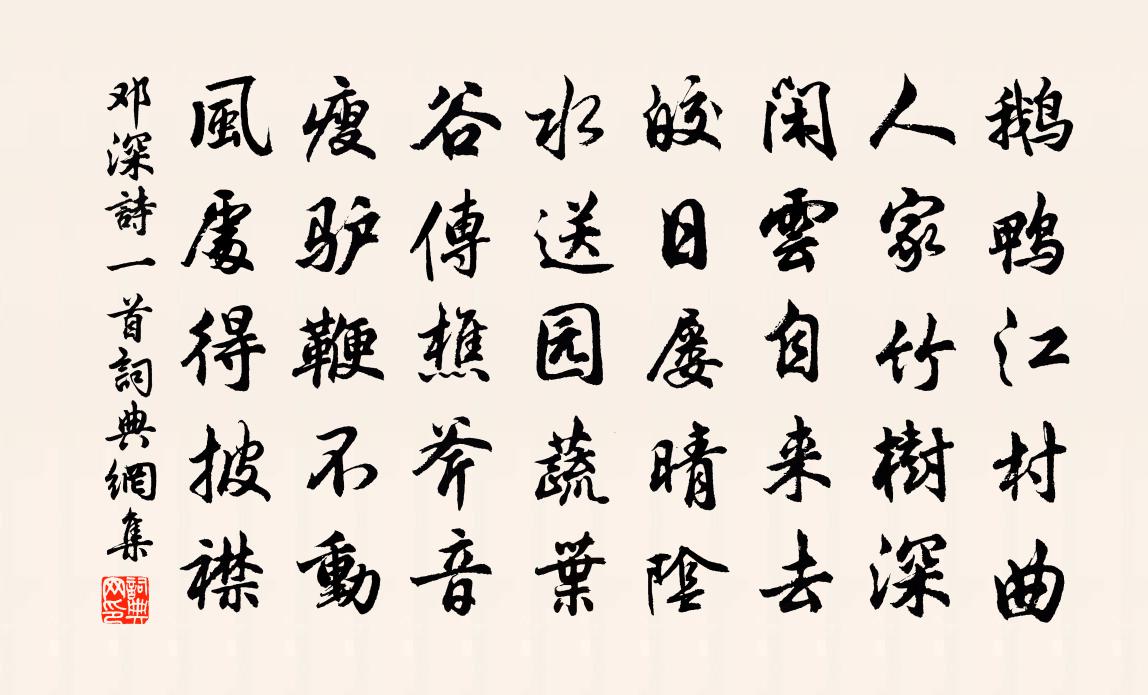 鹅鸭江村曲
人家竹樹深
闲雲自来去
皎日屡晴陰
水送园蔬葉
谷傳樵斧音
瘦驴鞭不動
風處得披襟
邓深詩一首詞典網集
詞典網印